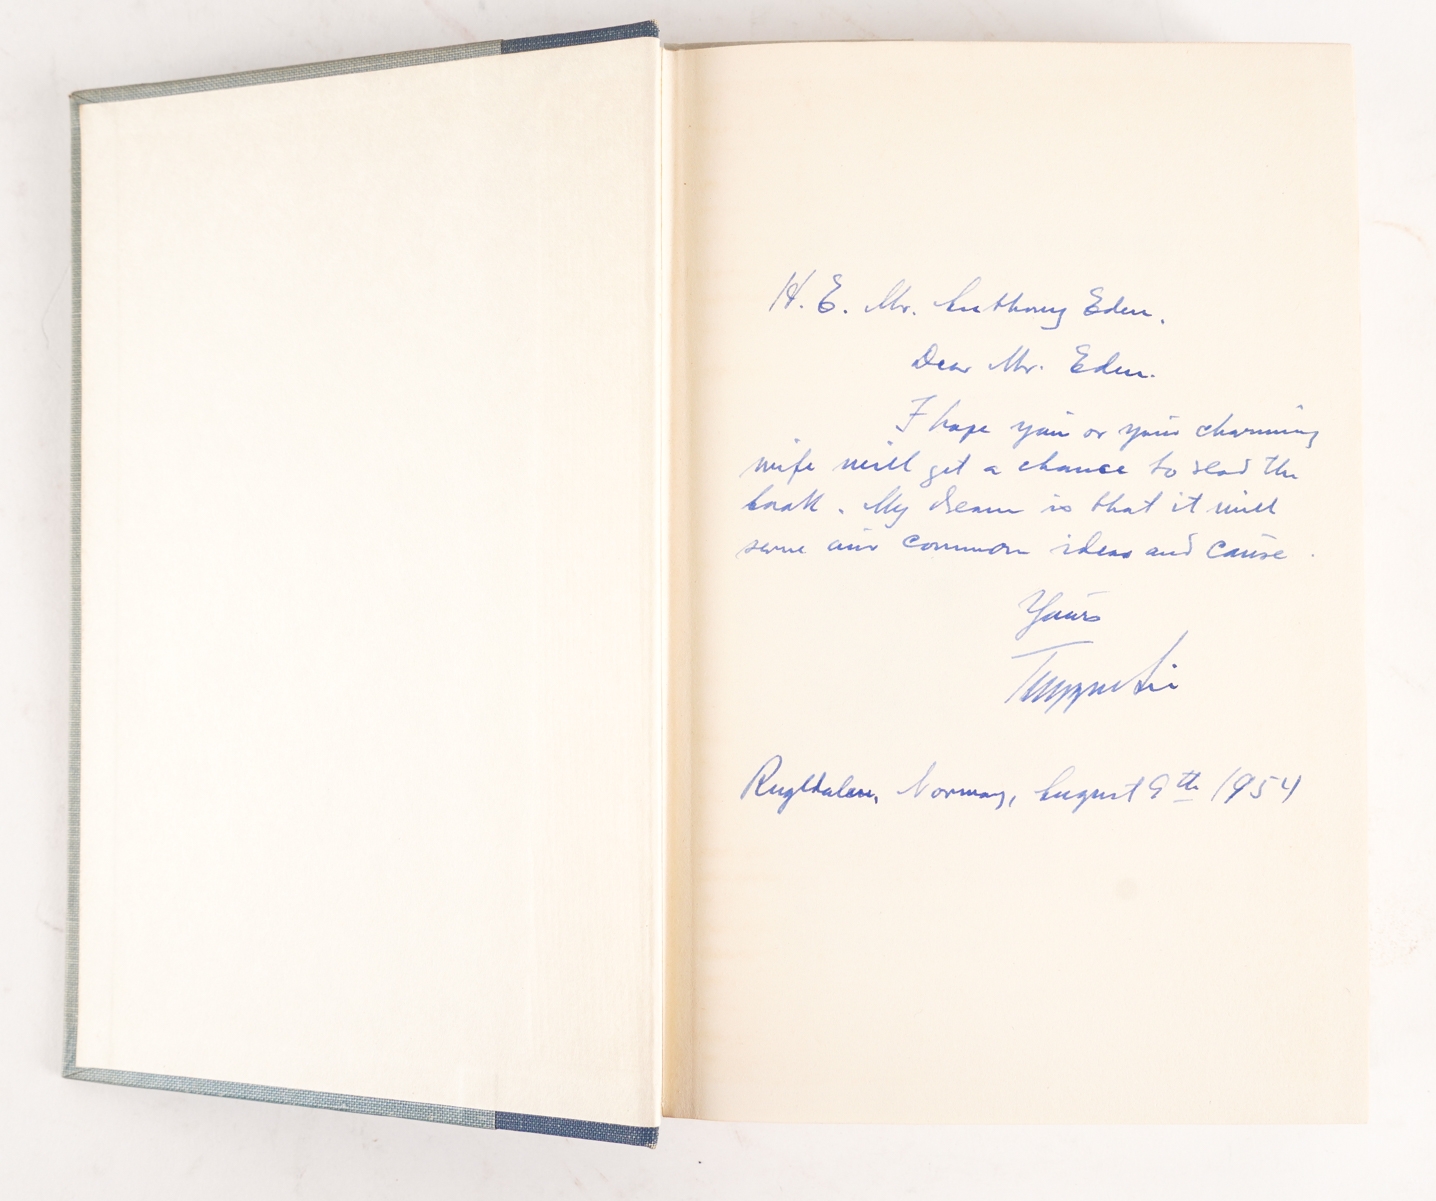 H. E. Mr. Anthony Eden.
Dear Mr. Eden.
I hope you or your charming
wife will get a chance to read the
book. My dream is that it will
serve our common ideas and cause.
Yours
Trygve Lie
Norway, August 9th 1954